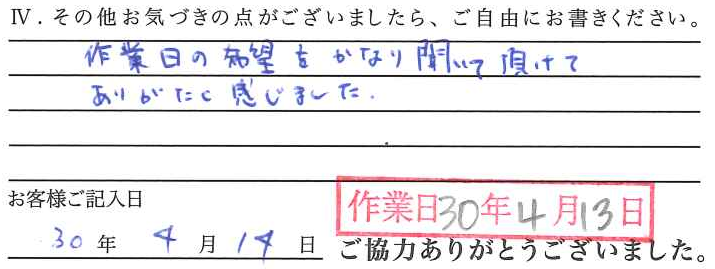 Ⅳ．その他お気づきの点がございましたら、ご自由にお書きください。
作業日の希望をかなり聞いて頂けて
ありがたく感じました.
お客様ご記入日
作業日30年4月13日
30年4月14日
ご協力ありがとうございました。